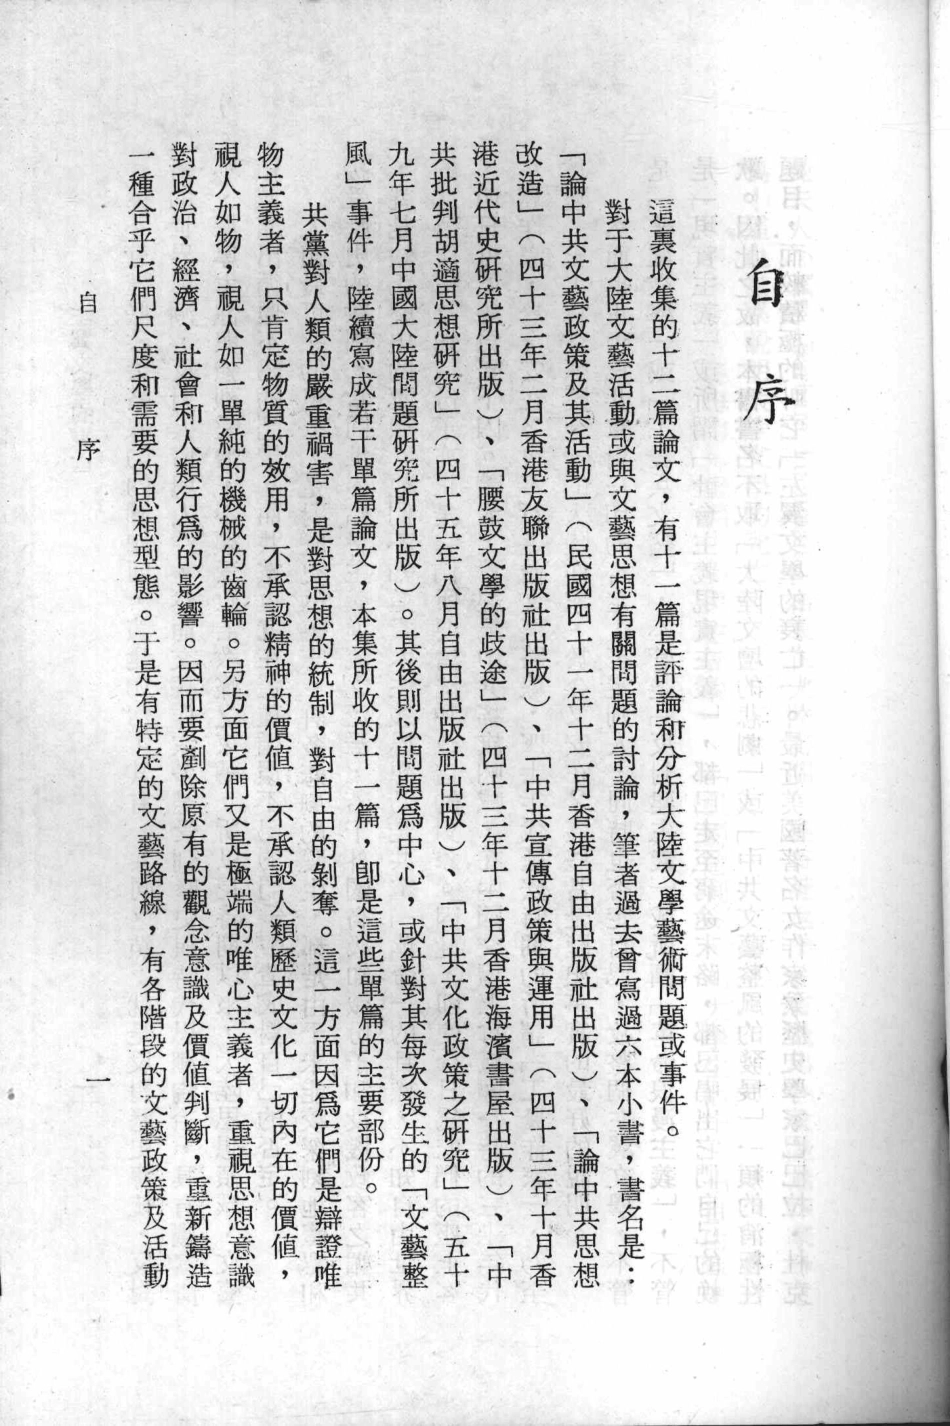 自序
這裏收集的十二篇論文，有十一篇是評論和分析大陸文學藝術問題或事件。
對于大陸文藝活動或與文藝思想有關問題的討論，筆者過去曾寫過六本小書，書名是：
「論中共文藝政策及其活動」（民國四十一年十二月香港自由出版社出版）、「論中共思想
改造」（四十三年二月香港友聯出版社出版）、「中共宣傳政策與運用」（四十三年十月香
港近代史研究所出版）、「腰鼓文學的歧途」（四十三年十二月香港海濱書屋出版）、「中
共批判胡適思想研究」（四十五年八月自由出版社出版）、「中共文化政策之研究」（五十
九年七月中國大陸問題研究所出版）。其後則以問題爲中心，或針對其每次發生的「文藝整
風」事件，陸續寫成若干單篇論文，本集所收的十一篇，卽是這些單篇的主要部份。
共黨對人類的嚴重禍害，是對思想的統制，對自由的剝奪。這一方面因爲它們是辯證唯
物主義者，只肯定物質的效用，不承認精神的價值，不承認人類歷史文化一切內在的價值，
視人如物，視人如一單純的機械的齒輪。另方面它們又是極端的唯心主義者，重視思想意識
對政治、經濟、社會和人類行爲的影響。因而要剷除原有的觀念意識及價值判斷，重新鑄造
一種合乎它們尺度和需要的思想型態。于是有特定的文藝路線，有各階段的文藝政策及活動
自序
一